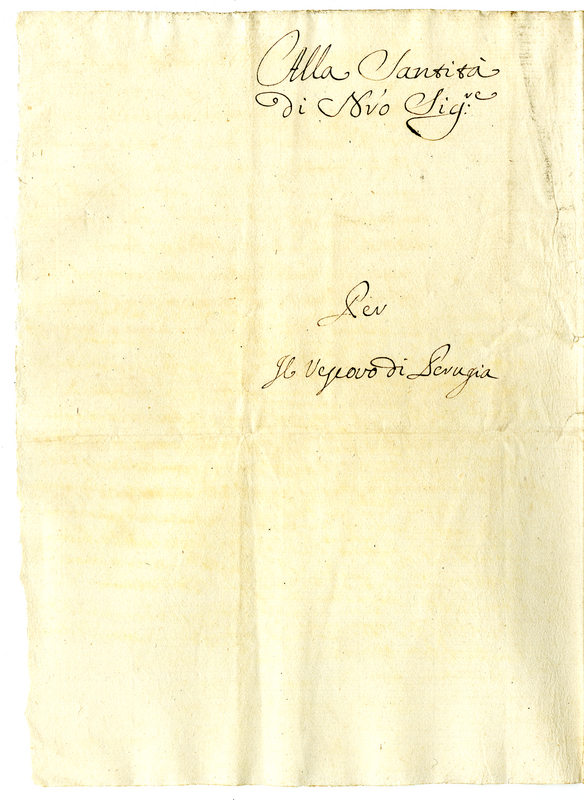 Alla Santità
di Nr̃o Sig.re
Per
Il Vescovo di Perugia